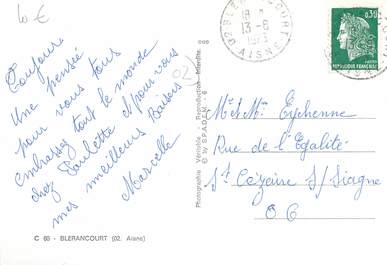 10 €
Toujours
Une pensée
pour vous tous
embrassez tout le monde
chez Paulette et pour vous
mes meilleurs Baisers
Marcelle
(02)
C 60 - BLERANCOURT (02. Aisne)
Photographie Véritable - Reproduction Interdite
© by SPADEM
02 BLERANCOURT
18 H
13-6
AISNE
0,30
REPUBLIQUE FRANCAISE
Mr et Mme Eychenne
Rue de l'Egalité
St Cézaire S/ Siagne
06